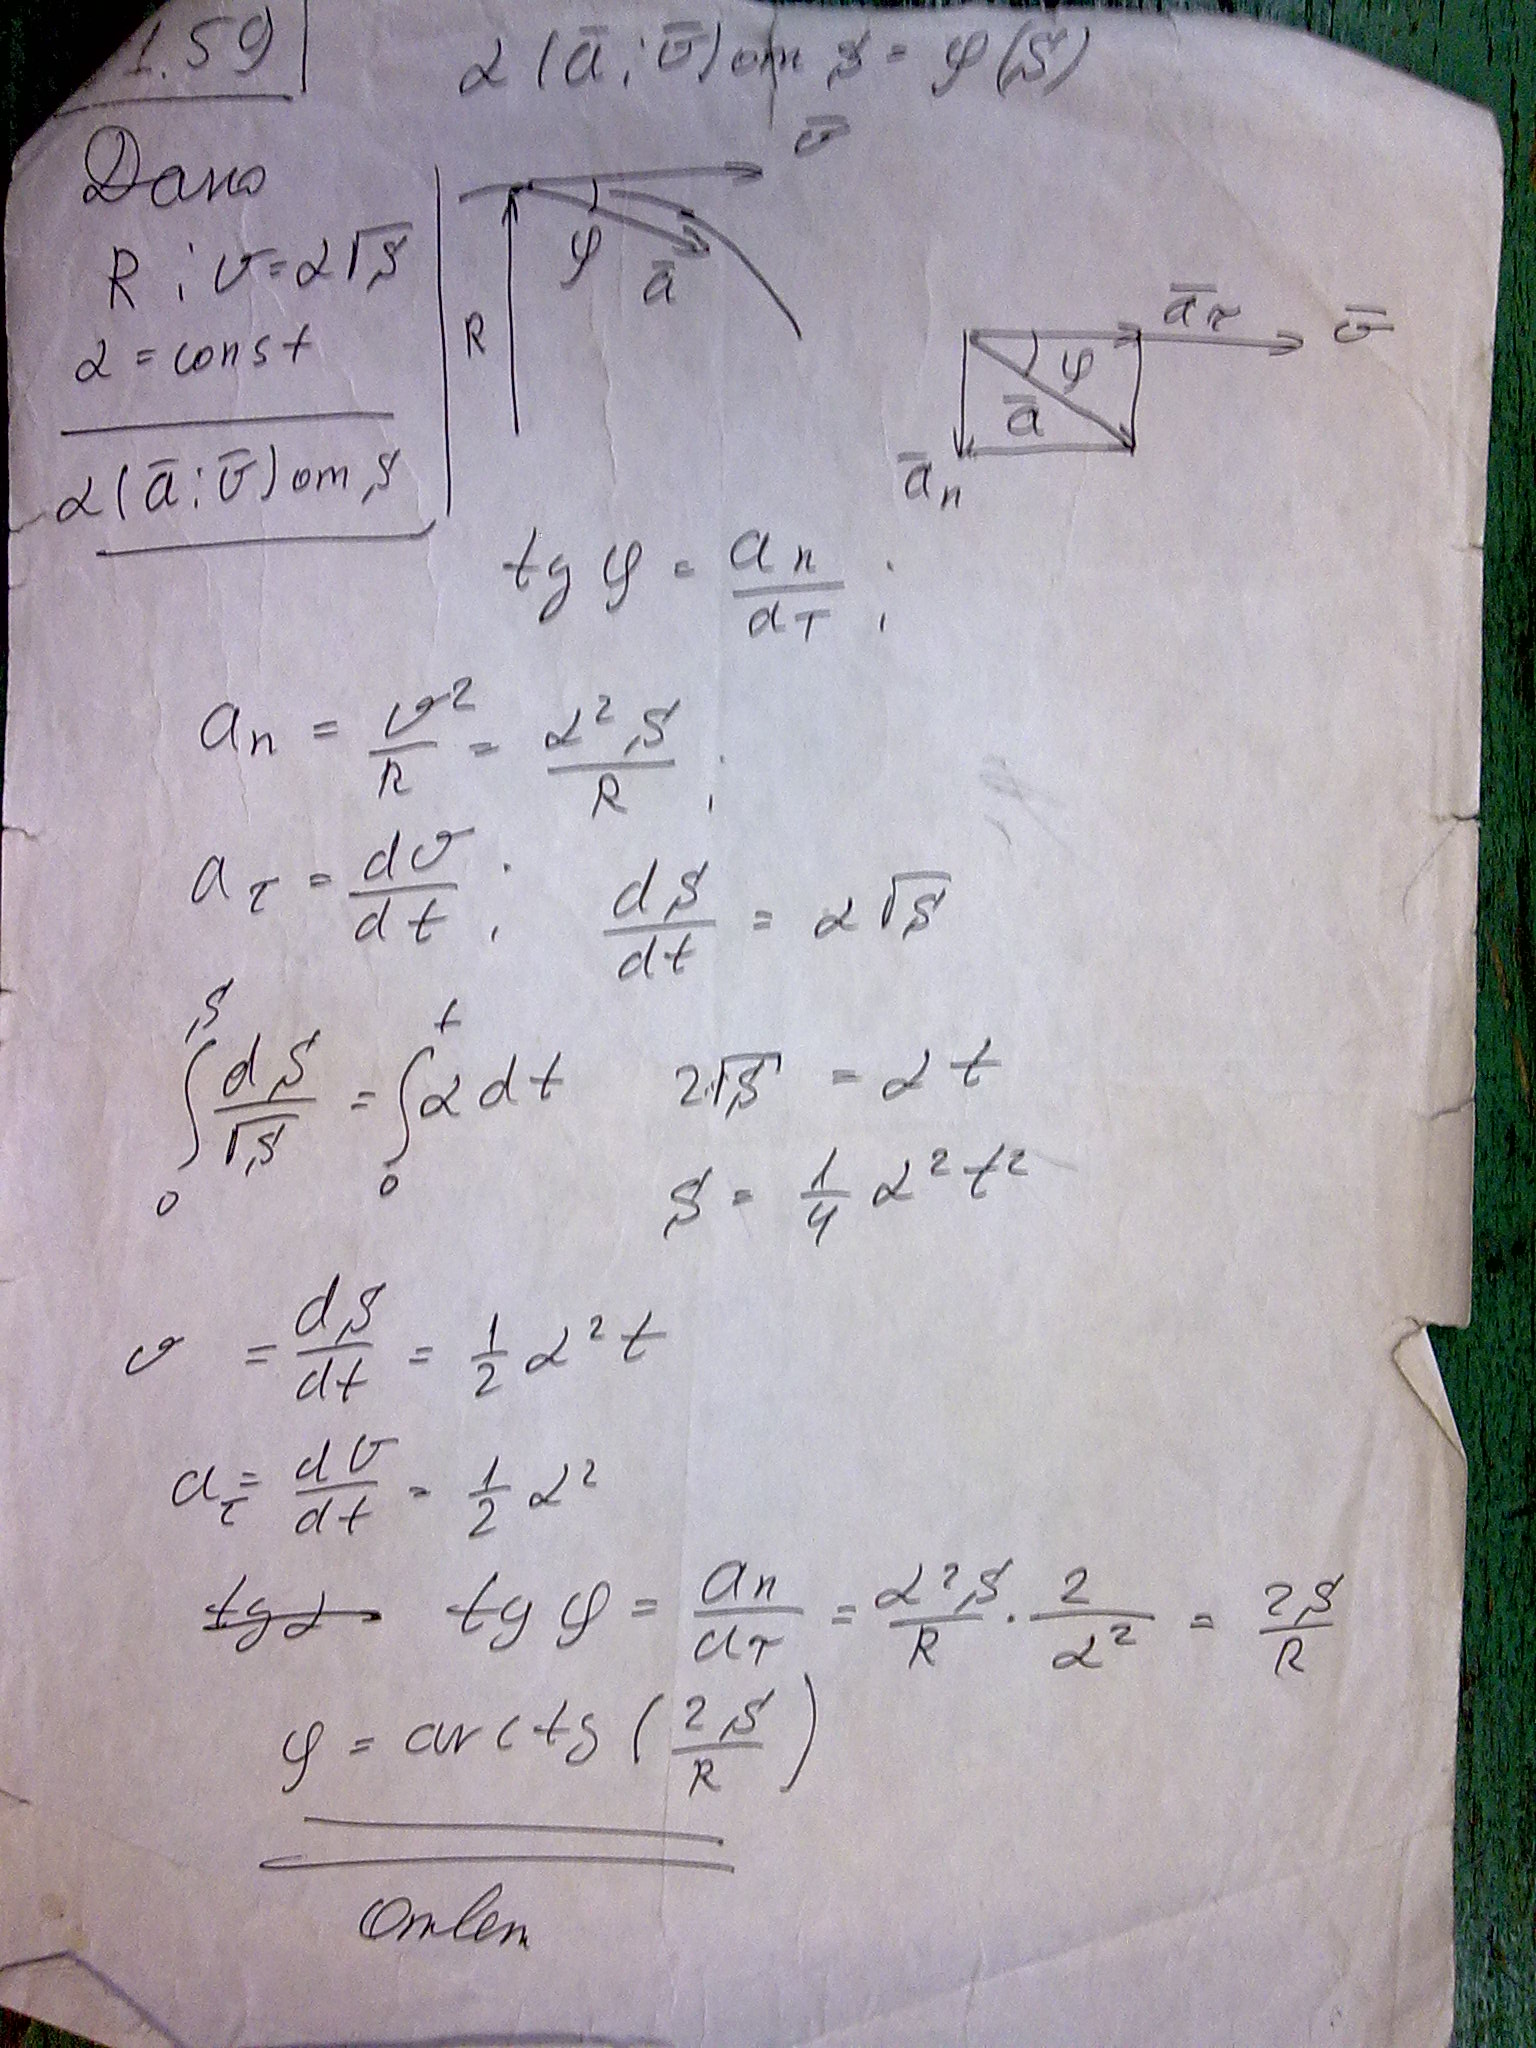 1.59
α (ā; v̄) от S = φ(S)
Дано
R; v = α√S
α = const
α (ā; v̄) от S
v̄
φ
ā
R
ā_τ v̄
φ
ā
ā_n
tg φ = a_n / a_τ;
a_n = v² / R = α² S / R;
a_τ = dv / dt; dS / dt = α√S
∫₀^S dS / √S = ∫₀^t α dt 2√S = α t
S = 1/4 α² t²
v = dS / dt = 1/2 α² t
a_τ = dv / dt = 1/2 α²
tg α tg φ = a_n / a_τ = α² S / R · 2 / α² = 2S / R
φ = arctg (2S / R)
Ответ